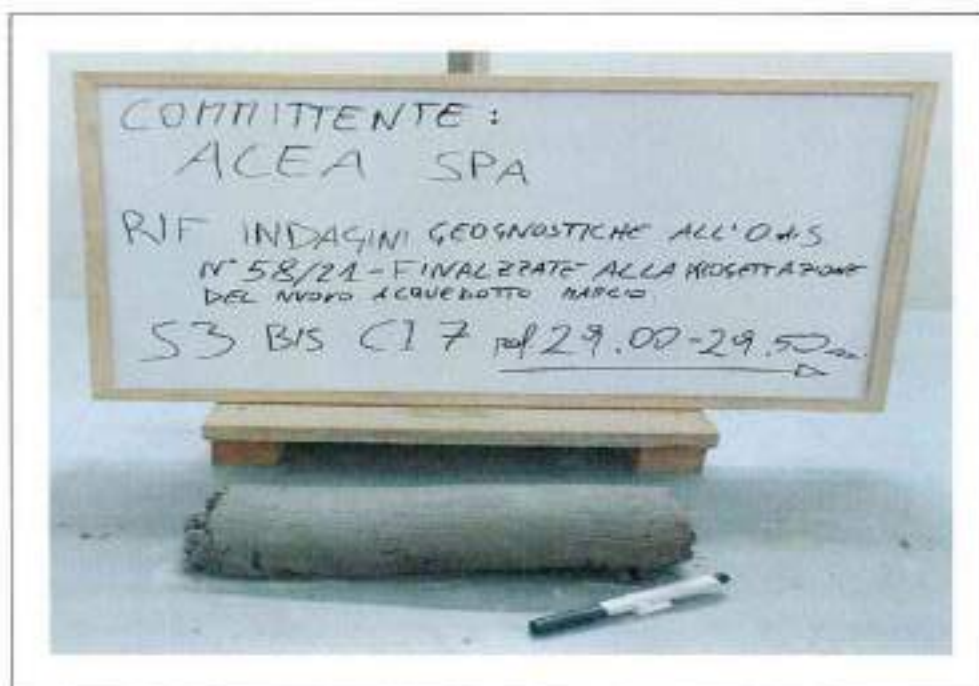 COMMITTENTE :
ACEA SPA
RIF INDAGINI GEOGNOSTICHE ALL'OdS
N° 58/21 - FINALZZATE ALLA PROGETTAZIONE
DEL NUOVO ACQUEDOTTO MARCIO
S3 BIS CI 7 prof 29.00-29.50 m